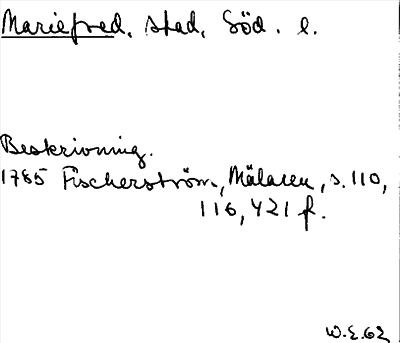 Mariefred, stad, Söd. l.
Beskrivning.
1785 Fischerström, Mälaren, s. 110,
116, 421 f.
W.E.62